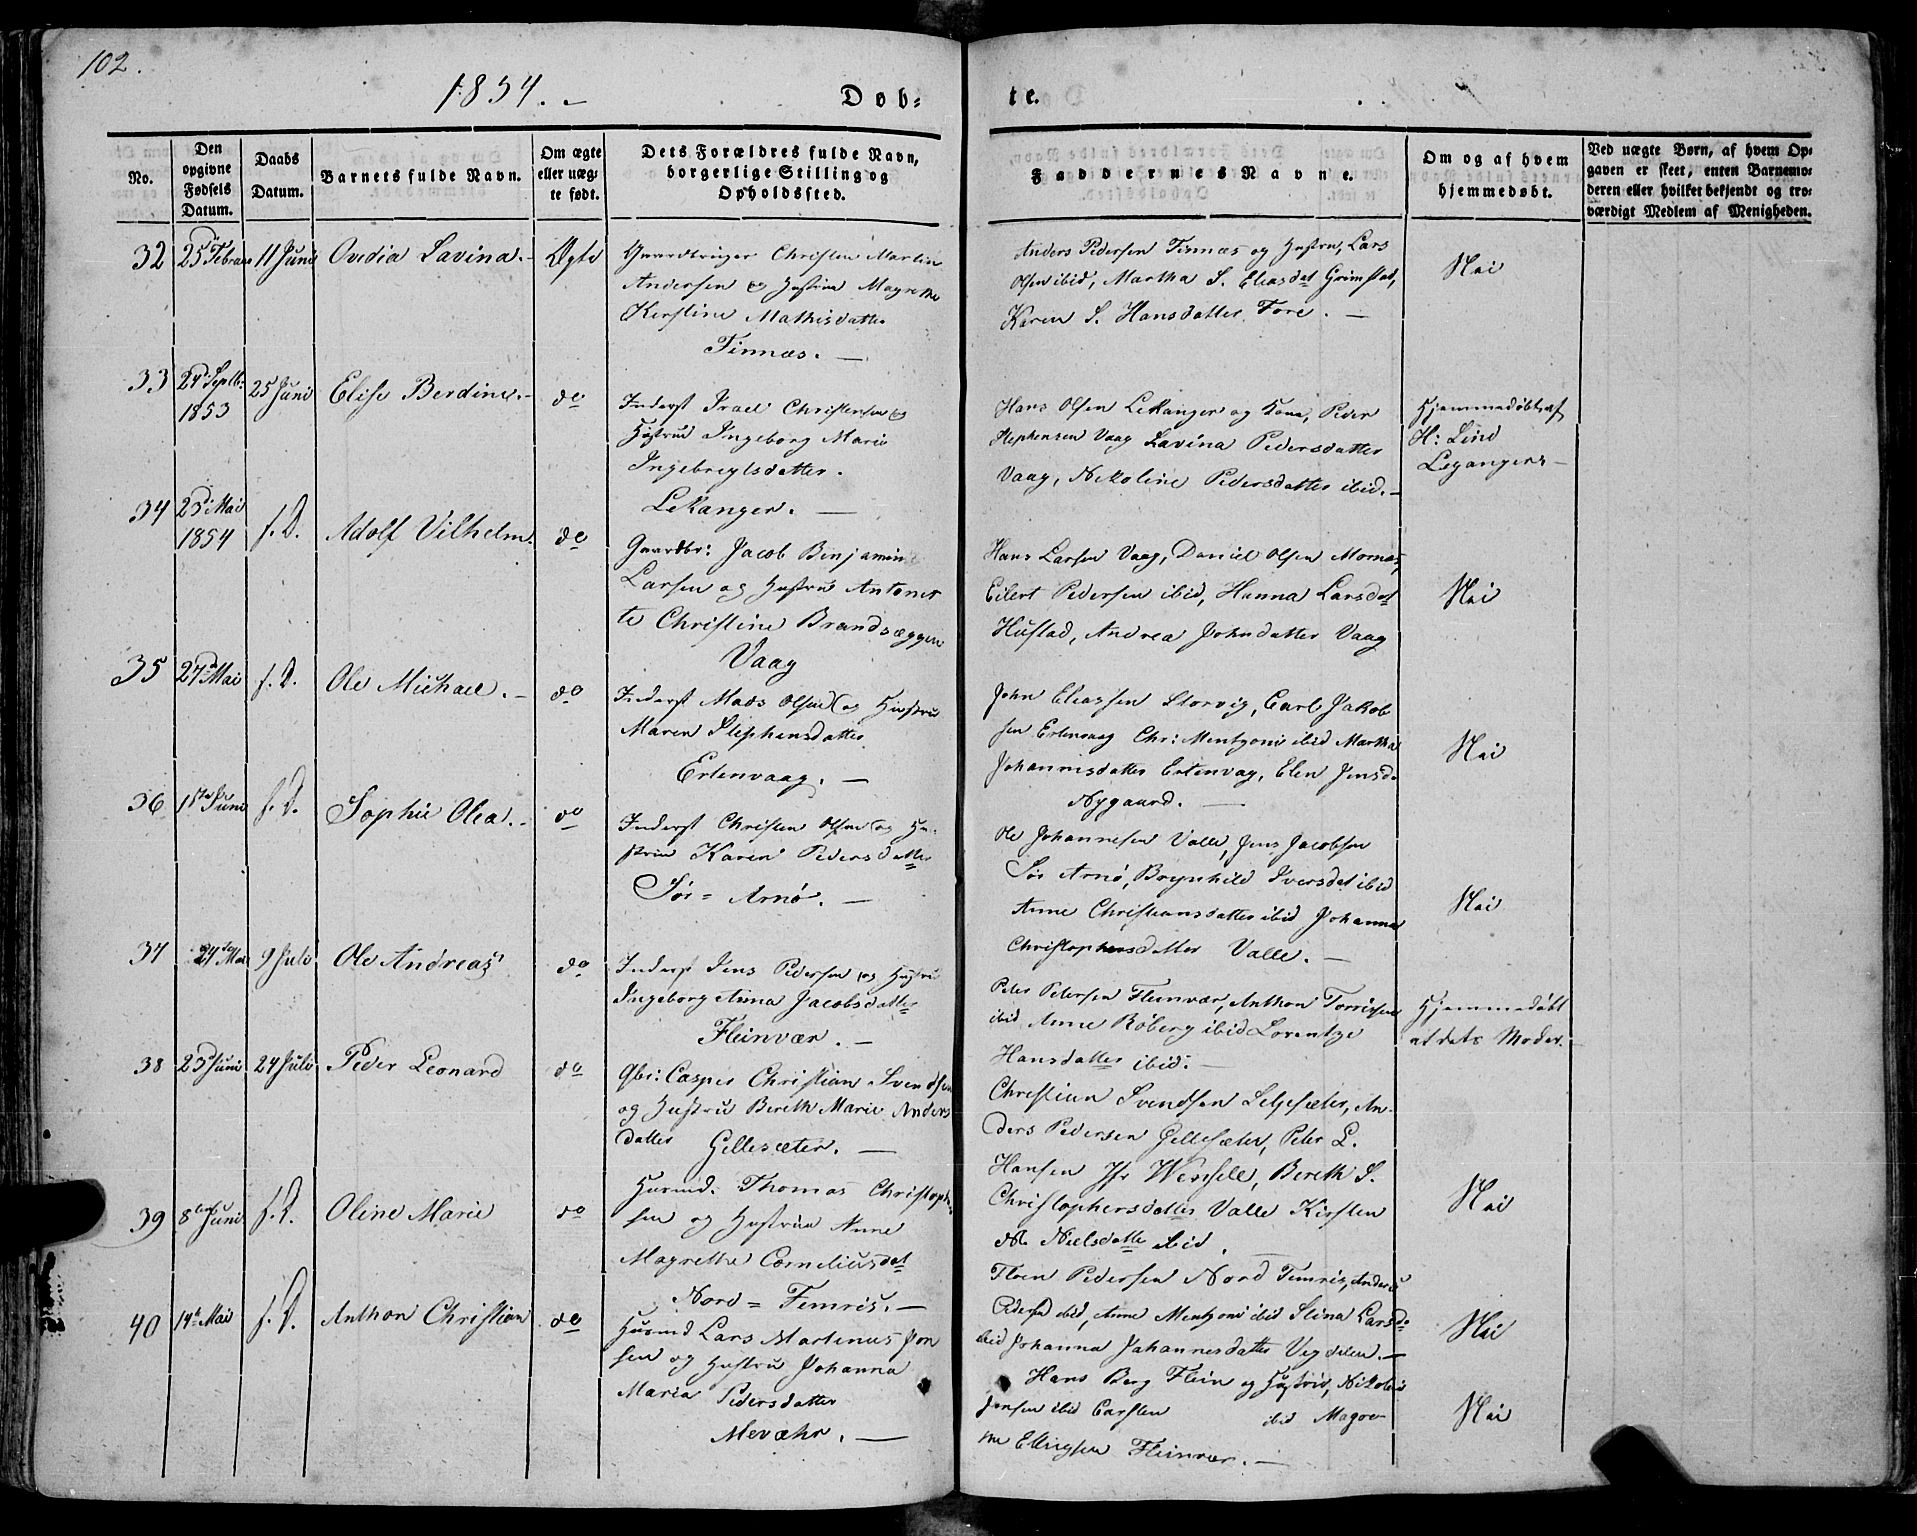 102.
1854. -
Døb-
te.
No.
Den opgivne Fødsels Datum.
Daabs Datum.
Barnets fulde Navn.
Om ægte eller uæg-te født.
Dets Forældres fulde Navn, borgerlige Stilling og Opholdssted.
Faddernes Navne.
Om og af hvem hjemmedøbt.
Ved uægte Børn, af hvem Op-gaven er skeet, enten Barnemo-deren eller hvilket bekjendt og tro-værdigt Medlem af Menigheden.
32 25 Febrar 11 Juni Ovedia Lavina. - Ægte
Gaardbruger Christen Martin
Andersen og Hustru Magrethe
Kirstine Mathisdatter
Finnæs. -
Anders Pedersen Finnæs og Hustru, Lars
Olsen ibid, Martha S. Eleasdat Grimstad,
Karen S. Hansdatter Fore. -
Nei
33 24 Septb: 1853 25 Juni Elise Berdine. - do
Inderst Israel Christensen og
Hustrue Ingeborg Marie
Ingebregtsdatter.
LeKanger. -
Hans Olsen LeKanger og Kone, Peder
Stephensen Vaag Lavina Pedersdatter
Vaag, Nikoline Pedersdatter ibid. -
Hjemmedøbt af
H: Lind
Legangers -
34 23 Mai 1854 f. D. Adolf Vilhelm. do
Gaardbr: Jacob Benjamin
Larsen og Hustru Antonet
te Christine Brandsæggen
Vaag
Hans Larsen Vaag, Daniel Olsen Mornæs,
Eilert Pedersen ibid, Hanna Larsdat
Hustad, Andrea Johndatter Vaag
Nei
35 27 Mai f. D. Ole Michael. - do
Inderst Mads Olsen og Hustru
Maren Stephensdatter
Ertenvaag. -
John Eleassen Storvig, Carl Jakob
sen Ertenvaag Chr: Mentzoni ibid Martha
Johannisdatter Ertenvag, Elen Jensd.
Nygaard. -
Nei
36 1ste Juni f. D. Sophie Olea. - do
Inderst Christen Olsen og Hu-
strue Karen Pedersdatter
Sør = Arnø. -
Ole Johannesen Valle, Jens Jacobsen
Sør Arnø, Brynhild Iversdat ibid
Anne Christiansdatter ibid Johanna
Christophersdatter Valle. -
Nei
37 24de Mai 9 Juli Ole Andreas do
Inderst Jens Pedersen og Hustru
Ingeborg Anna Jacobsdatter
Fleinvær. -
Peter Petersen Fleinvær, Anthon Torrisen
ibid Anne Røberg ibid Lorentze
Hansdatter ibid. -
Hjemmedøbt
af dets Moder.
38 23 Juni 24 Juli Peder Leonard do
Gbr: Casper Christian Svendsen
og Hustru Bereth Marie Anders
datter Gillesæter. -
Christian Svendsen Selgesæter, An-
ders Pedersen Gillesæter, Peter L.
Hansen Wensele, Bereth S.
Christophersdatter Valle Kirsten
N. Nielsdatte ibid.
Nei
39 8de Juni f. D. Oline Marie do
Husmd. Thomas Christoph
sen og Hustrue Anne
Magrethe Corneliusdat
Nord = Femris. -
Floen Pedersen Nord Femris, Anders
Peders ibid, Anne Mentzoni ibid Stina Larsd
ibid Johanna Johannesdatter Vegdalen. -
Nei
40 14de Mai f. D. Anthon Christian do
Husmd Lars Martinus Jon
sen og Hustru Johanna
Maria Pedersdatter
Mevæhr. -
Hans Berg Flein og Hustru, Nikolai
Jensen ibid Carsten ibid Magre-
the Ellingsen Fleinvær. -
Nei